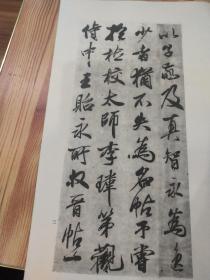 以子敬及真智永為
少者猶不失為名帖余嘗
於檢校太師李瑋第觀
侍中王貽永所收晉帖一